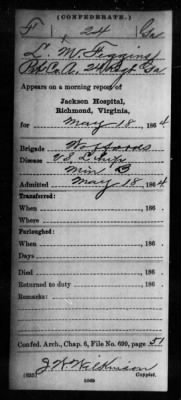 (CONFEDERATE.)
F 24 Ga
L. M. Figgins
Pvt Co. A, 24 Regt Ga
Appears on a morning report of
Jackson Hospital,
Richmond, Virginia,
for May 18, 1864
Brigade Woffords
Disease V.S. L hip
Min B
Admitted May 18, 1864
Transferred:
When 186
Where
Furloughed:
When 186
Days
Died 186
Returned to duty 186
Remarks:
Confed. Arch., Chap. 6, File No. 699, page 51
J. W. Wilkinson
(635) Copyist.